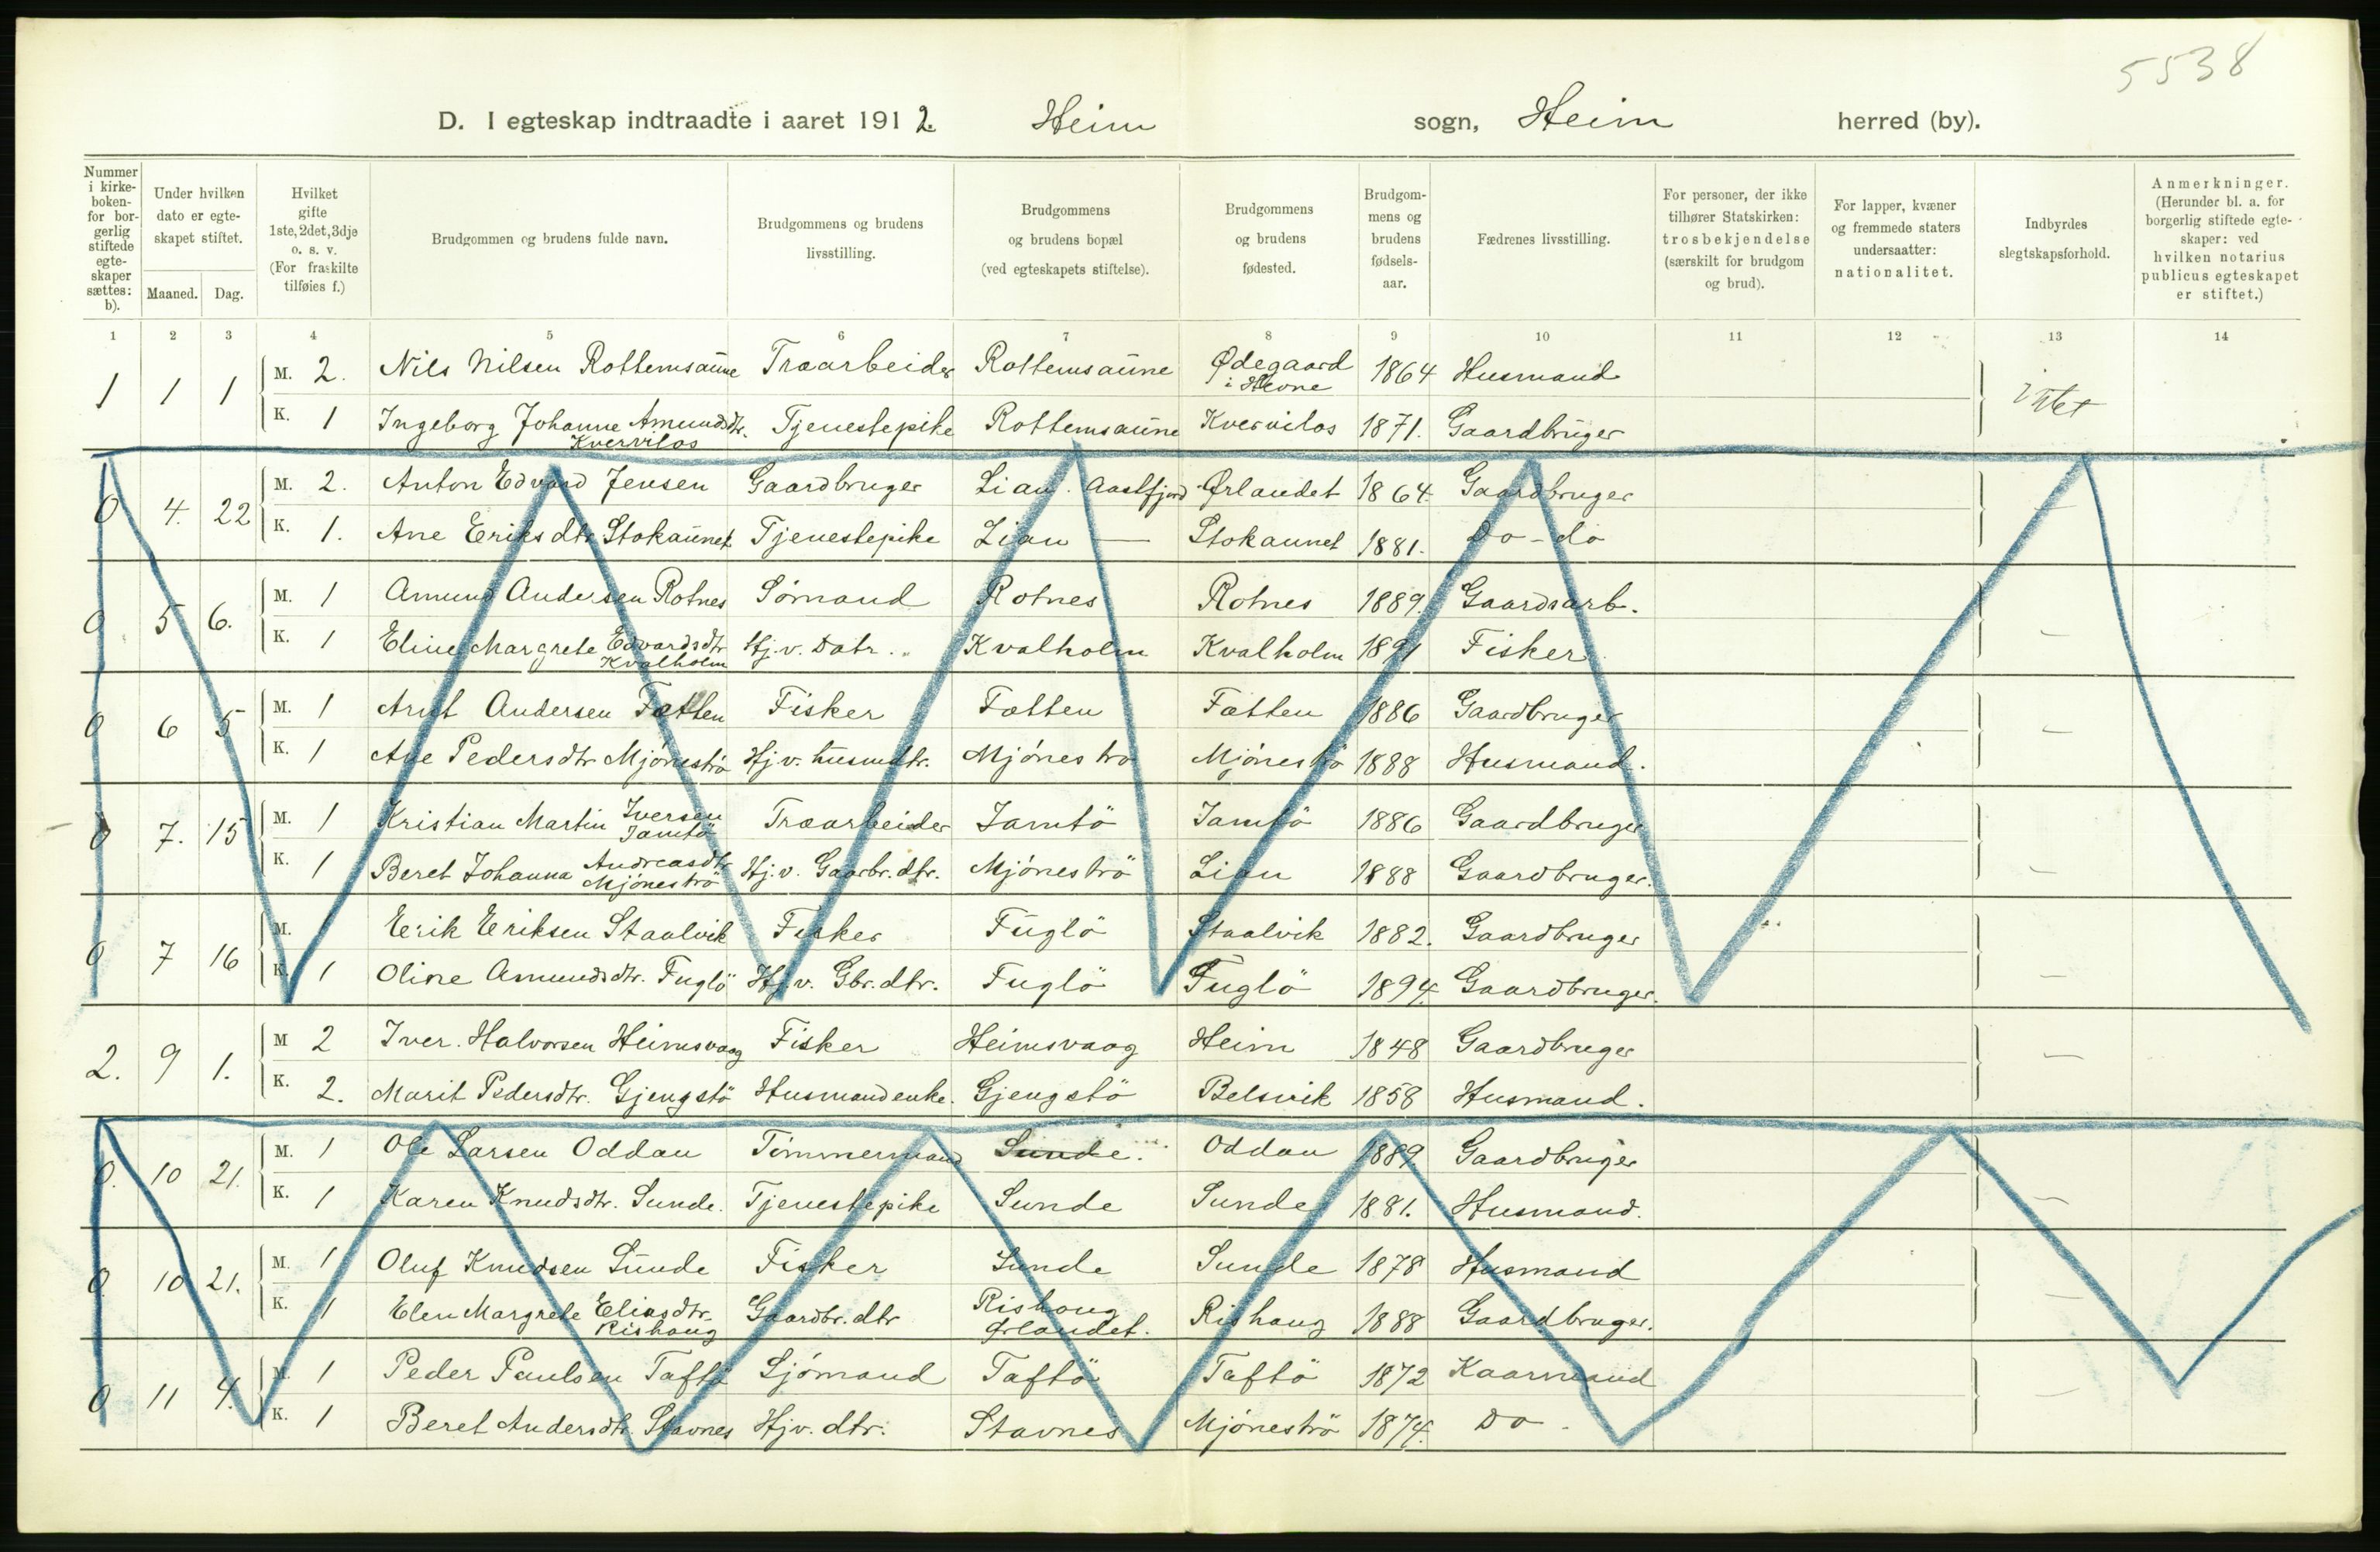 5538
D. I egteskap indtraadte i aaret 1912. Heim sogn, Heim herred (by).
Nummer i kirke-boken- for bor-gerlig stiftede egte-skaper sættes: b).
Under hvilken dato er egte-skapet stiftet.
Maaned. Dag.
Hvilket gifte 1ste, 2det, 3dje o. s. v. (For fraskilte tilføies f.)
Brudgommen og brudens fulde navn.
Brudgommens og brudens livsstilling.
Brudgommens og brudens bopæl (ved egteskapets stiftelse).
Brudgommens og brudens fødested.
Brudgom-mens og brudens fødsels-aar.
Fædrenes livsstilling.
For personer, der ikke tilhører Statskirken: trosbekjendelse (særskilt for brudgom og brud).
For lapper, kvæner og fremmede staters undersaatter: nationalitet.
Indbyrdes slegtskapsforhold.
Anmerkninger. (Herunder bl. a. for borgerlig stiftede egte-skaper: ved hvilken notarius publicus egteskapet er stiftet.)
1 2 3 4 5 6 7 8 9 10 11 12 13 14
1 1 1 M. 2. Nils Nilsen Rottemsaune Træarbeider Rottemsaune Ødegaard i Hevne 1864 Husmand intet
K. 1 Ingeborg Johanne Amundsdtr. Kvervilos Tjenestepike Rottemsaune Kvervilos 1871. Gaardbruger
0 4. 22 M. 2. Anton Edvard Jensen Gaardbruger Lian. Aastfjord Ørlandet 1864. Gaardbruger —
K. 1. Ane Eriksdtr Stokaunet Tjenestepike Lian — Stokaunet 1881. Do-do
0 5 6. M. 1 Amund Andersen Rotnes Sömand Rotnes Rotnes 1889. Gaardsarb. —
K. 1 Eline Margrete Edvardsdtr Kvalholm Hj.v. Datr. Kvalholm Kvalholm 1891 Fisker
0 6 5 M. 1 Arnt Andersen Fætten Fisker Fætten Fætten 1886 Gaardbruger —
K. 1 Ane Pedersdtr Mjöneströ Hj.v. husmdtr. Mjöneströ Mjöneströ 1888 Husmand.
0 7. 15 M. 1 Kristian Martin Iversen Jamtö Træarbeider Jamtö Jamtö 1886 Gaardbruger —
K. 1 Beret Johanna Andreasdtr Mjöneströ Hj.v. Gaarbr.dtr. Mjöneströ Lian 1888 Gaardbruger.
0 7 16 M. Erik Eriksen Staalvik Fisker Fuglö Staalvik 1882. Gaardbruger —
K. 1 Oline Amundsdtr. Fuglö Hj.v. Gbr.dtr. Fuglö Fuglö 1894. Gaardbruger.
2. 9 1. M 2 Iver Halvorsen Heimsvaag Fisker Heimsvaag Heim 1848 Gaardbruger —
K. 2. Marit Pedersdtr. Gjengstö Husmandenke. Gjengstö Belsvik 1858 Husmand.
0. 10 21. M. 1 Ole Larsen Oddan Tömmermand Sunde. Oddan 1889. Gaardbruger —
K. 1 Karen Knudsdtr. Sunde. Tjenestepike Sunde Sunde 1881. Husmand.
0 10 21. M. 1 Oluf Knudsen Sunde Fisker Sunde Sunde 1878 Husmand —
K. 1 Elen Margrete Eliasdtr. Rishaug Gaardbr.dtr Rishaug Ørlandet. Rishaug 1888 Gaardbruger.
0 11 4. M. 1 Peder Paulsen Taftö Sjömand Taftö Taftö 1872 Kaarmand —
K. 1 Beret Andersdtr. Stavnes Hjv. dtr. Stavnes Mjöneströ 1874. Do.